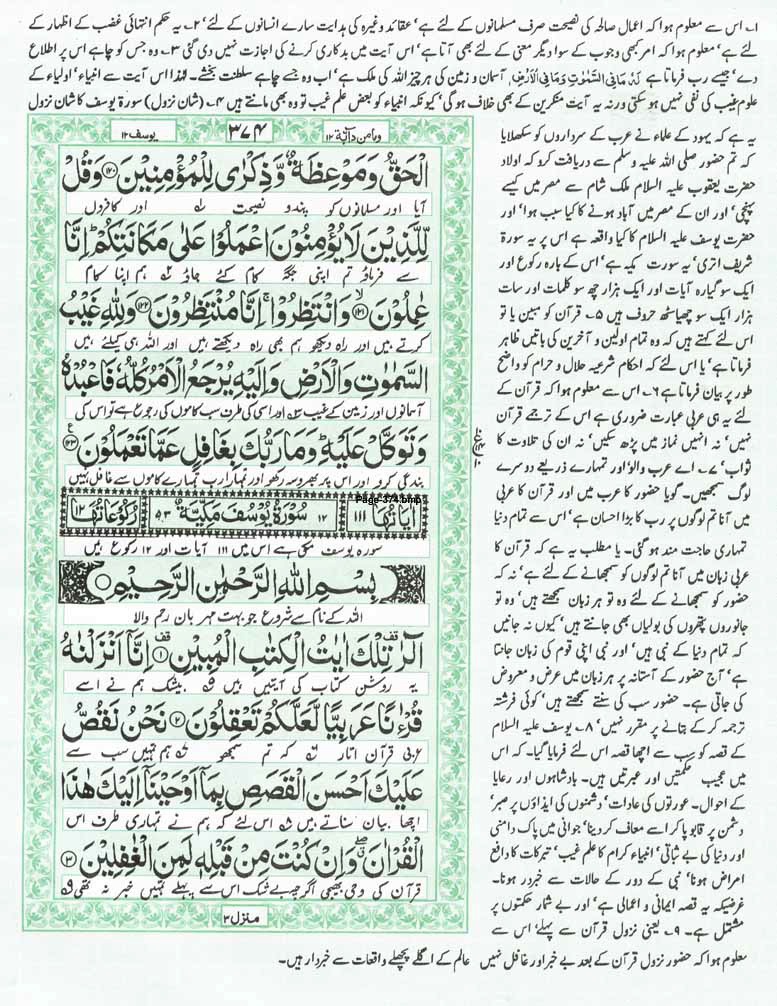 ۱۔ اس سے معلوم ہوا کہ اعمال صالحہ کی نصیحت صرف مسلمانوں کے لئے ہے' عقائد وغیرہ کی ہدایت سارے انسانوں کے لئے' ۲۔ یہ حکم انتہائی غضب کے اظہار کے
لئے ہے' معلوم ہوا کہ امر کبھی وجوب کے سوا دیگر معنی کے لئے بھی آتا ہے' اس آیت میں بدکاری کرنے کی اجازت نہیں دی گئی ۳۔ وہ جس کو چاہے اس پر اطلاع
دے' جیسے رب فرماتا ہے لَهٗ مَا فِی السَّمٰوٰتِ وَمَا فِی الْاَرْضِ آسمان و زمین کی ہر چیز اللہ کی ملک ہے' اب وہ جسے چاہے سلطنت بخشے۔ لہٰذا اس آیت سے انبیاء' اولیاء کے
علوم غیب کی نفی نہیں ہو سکتی ورنہ یہ آیت منکرین کے بھی خلاف ہوگی' کیونکہ انبیاء کو بعض علم غیب تو وہ بھی مانتے ہیں ۴۔ (شان نزول) سورۃ یوسف کا شان نزول
یہ ہے کہ یہود کے علماء نے عرب کے سرداروں کو سکھلایا
کہ تم حضور صلی اللہ علیہ وسلم سے دریافت کرو کہ اولاد
حضرت یعقوب علیہ السلام ملک شام سے مصر میں کیسے
پہنچی' اور ان کے مصر میں آباد ہونے کا کیا سبب ہوا' اور
حضرت یوسف علیہ السلام کا کیا واقعہ ہے اس پر یہ سورۃ
شریف اتری' یہ سورت مکیہ ہے' اس کے بارہ رکوع اور
ایک سو گیارہ آیات اور ایک ہزار چھ سو کلمات اور سات
ہزار ایک سو چھیاسٹھ حروف ہیں ۵۔ قرآن کو مبین یا تو
اس لئے کہتے ہیں کہ وہ تمام اولین و آخرین کی باتیں ظاہر
فرماتا ہے' یا اس لئے کہ احکام شرعیہ حلال و حرام کو واضح
طور پر بیان فرماتا ہے ۶۔ اس سے معلوم ہوا کہ قرآن کے
لئے یہ ہی عربی عبارت ضروری ہے اس کے ترجمے قرآن
نہیں' نہ انہیں نماز میں پڑھ سکیں' نہ ان کی تلاوت کا
ثواب' ۷۔ اے عرب والو! اور تمہارے ذریعے دوسرے
لوگ سمجھیں۔ گویا حضور کا عرب میں اور قرآن کا عربی
میں آنا تم لوگوں پر رب کا بڑا احسان ہے' اس سے تمام دنیا
تمہاری حاجت مند ہو گئی۔ یا مطلب یہ ہے کہ قرآن کا
عربی زبان میں آنا تم لوگوں کو سمجھانے کے لئے ہے' نہ کہ
حضور کو سمجھانے کے لئے وہ تو ہر زبان سمجھتے ہیں' وہ تو
جانوروں پتھروں کی بولیاں بھی جانتے ہیں' کیوں نہ جانیں
کہ تمام دنیا کے نبی ہیں' اور نبی اپنی قوم کی زبان جانتا
ہے' آج حضور کے آستانہ پر ہر زبان میں عرض و معروض
کی جاتی ہے۔ حضور سب کی سنتے سمجھتے ہیں' کوئی فرشتہ
ترجمہ کر کے بتانے پر مقرر نہیں' ۸۔ یوسف علیہ السلام
کے قصہ کو سب سے اچھا قصہ اس لئے فرمایا گیا۔ کہ اس
میں عجیب حکمتیں اور عبرتیں ہیں۔ بادشاہوں اور رعایا
کے احوال۔ عورتوں کی عادات' دشمنوں کی ایذاؤں پر صبر'
دشمن پر قابو پا کر اسے معاف کر دینا' جوانی میں پاک دامنی
اور دنیا کی بے ثباتی' انبیاء کرام کا علم غیب' تبرکات کا دافع
امراض ہونا' نبی کے دور کے حالات سے خبردار ہونا۔
غرضیکہ یہ قصہ ایمانی و اعمالی ہے' اور بے شمار حکمتوں پر
مشتمل ہے۔ ۹۔ یعنی نزول قرآن سے پہلے' اس سے
معلوم ہوا کہ حضور نزول قرآن کے بعد بے خبر اور غافل نہیں عالم کے اگلے پچھلے واقعات سے خبردار ہیں۔
وما من دآبۃ ۱۲
۳۷۴
یوسف ۱۲
الْحَقُّ وَمَوْعِظَةٌ وَّذِكْرٰى لِلْمُؤْمِنِيْنَ ﴿۱۲۰﴾ وَقُلْ
آیا اور مسلمانوں کو پند و نصیحت اور کافروں
لِّلَّذِيْنَ لَا يُؤْمِنُوْنَ اعْمَلُوْا عَلٰى مَكَانَتِكُمْ ؕ اِنَّا
سے فرماؤ تم اپنی جگہ کام کئے جاؤ ہم اپنا کام
عٰمِلُوْنَ ﴿۱۲۱﴾ۙ وَانْتَظِرُوْا ۚ اِنَّا مُنْتَظِرُوْنَ ﴿۱۲۲﴾ وَلِلّٰهِ غَيْبُ
کرتے ہیں اور راہ دیکھو ہم بھی راہ دیکھتے ہیں اور اللہ ہی کیلئے ہیں
السَّمٰوٰتِ وَالْاَرْضِ وَاِلَيْهِ يُرْجَعُ الْاَمْرُ كُلُّهٗ فَاعْبُدْهُ
آسمانوں اور زمین کے غیب اور اسی کی طرف سب کاموں کی رجوع ہے تو اس کی
وَتَوَكَّلْ عَلَيْهِ ؕ وَمَا رَبُّكَ بِغَافِلٍ عَمَّا تَعْمَلُوْنَ ﴿۱۲۳﴾
بندگی کرو اور اس پر بھروسہ رکھو اور تمہارا رب تمہارے کاموں سے غافل نہیں
Page-374.bmp
اٰيَاتُهَا ۱۱۱
۱۲ سُوْرَةُ يُوْسُفَ مَكِّيَّةٌ ۵۳
رُكُوْعَاتُهَا ۱۲
سورہ یوسف مکی ہے اس میں ۱۱۱ آیات اور ۱۲ رکوع ہیں
بِسْمِ اللّٰهِ الرَّحْمٰنِ الرَّحِيْمِ
اللہ کے نام سے شروع جو بہت مہربان رحم والا
الٓرٰ تِلْكَ اٰيٰتُ الْكِتٰبِ الْمُبِيْنِ ﴿۱﴾ اِنَّاۤ اَنْزَلْنٰهُ
یہ روشن کتاب کی آیتیں ہیں بیشک ہم نے اسے
قُرْءٰنًا عَرَبِيًّا لَّعَلَّكُمْ تَعْقِلُوْنَ ﴿۲﴾ نَحْنُ نَقُصُّ
عربی قرآن اتارا کہ تم سمجھو ہم تمہیں سب سے
عَلَيْكَ اَحْسَنَ الْقَصَصِ بِمَاۤ اَوْحَيْنَاۤ اِلَيْكَ هٰذَا
اچھا بیان سناتے ہیں اس لئے کہ ہم نے تمہاری طرف اس
الْقُرْاٰنَ ۖ وَاِنْ كُنْتَ مِنْ قَبْلِهٖ لَمِنَ الْغٰفِلِيْنَ ﴿۳﴾
قرآن کی وحی بھیجی اگرچہ بے شک اس سے پہلے تمہیں خبر نہ تھی
منزل ۳